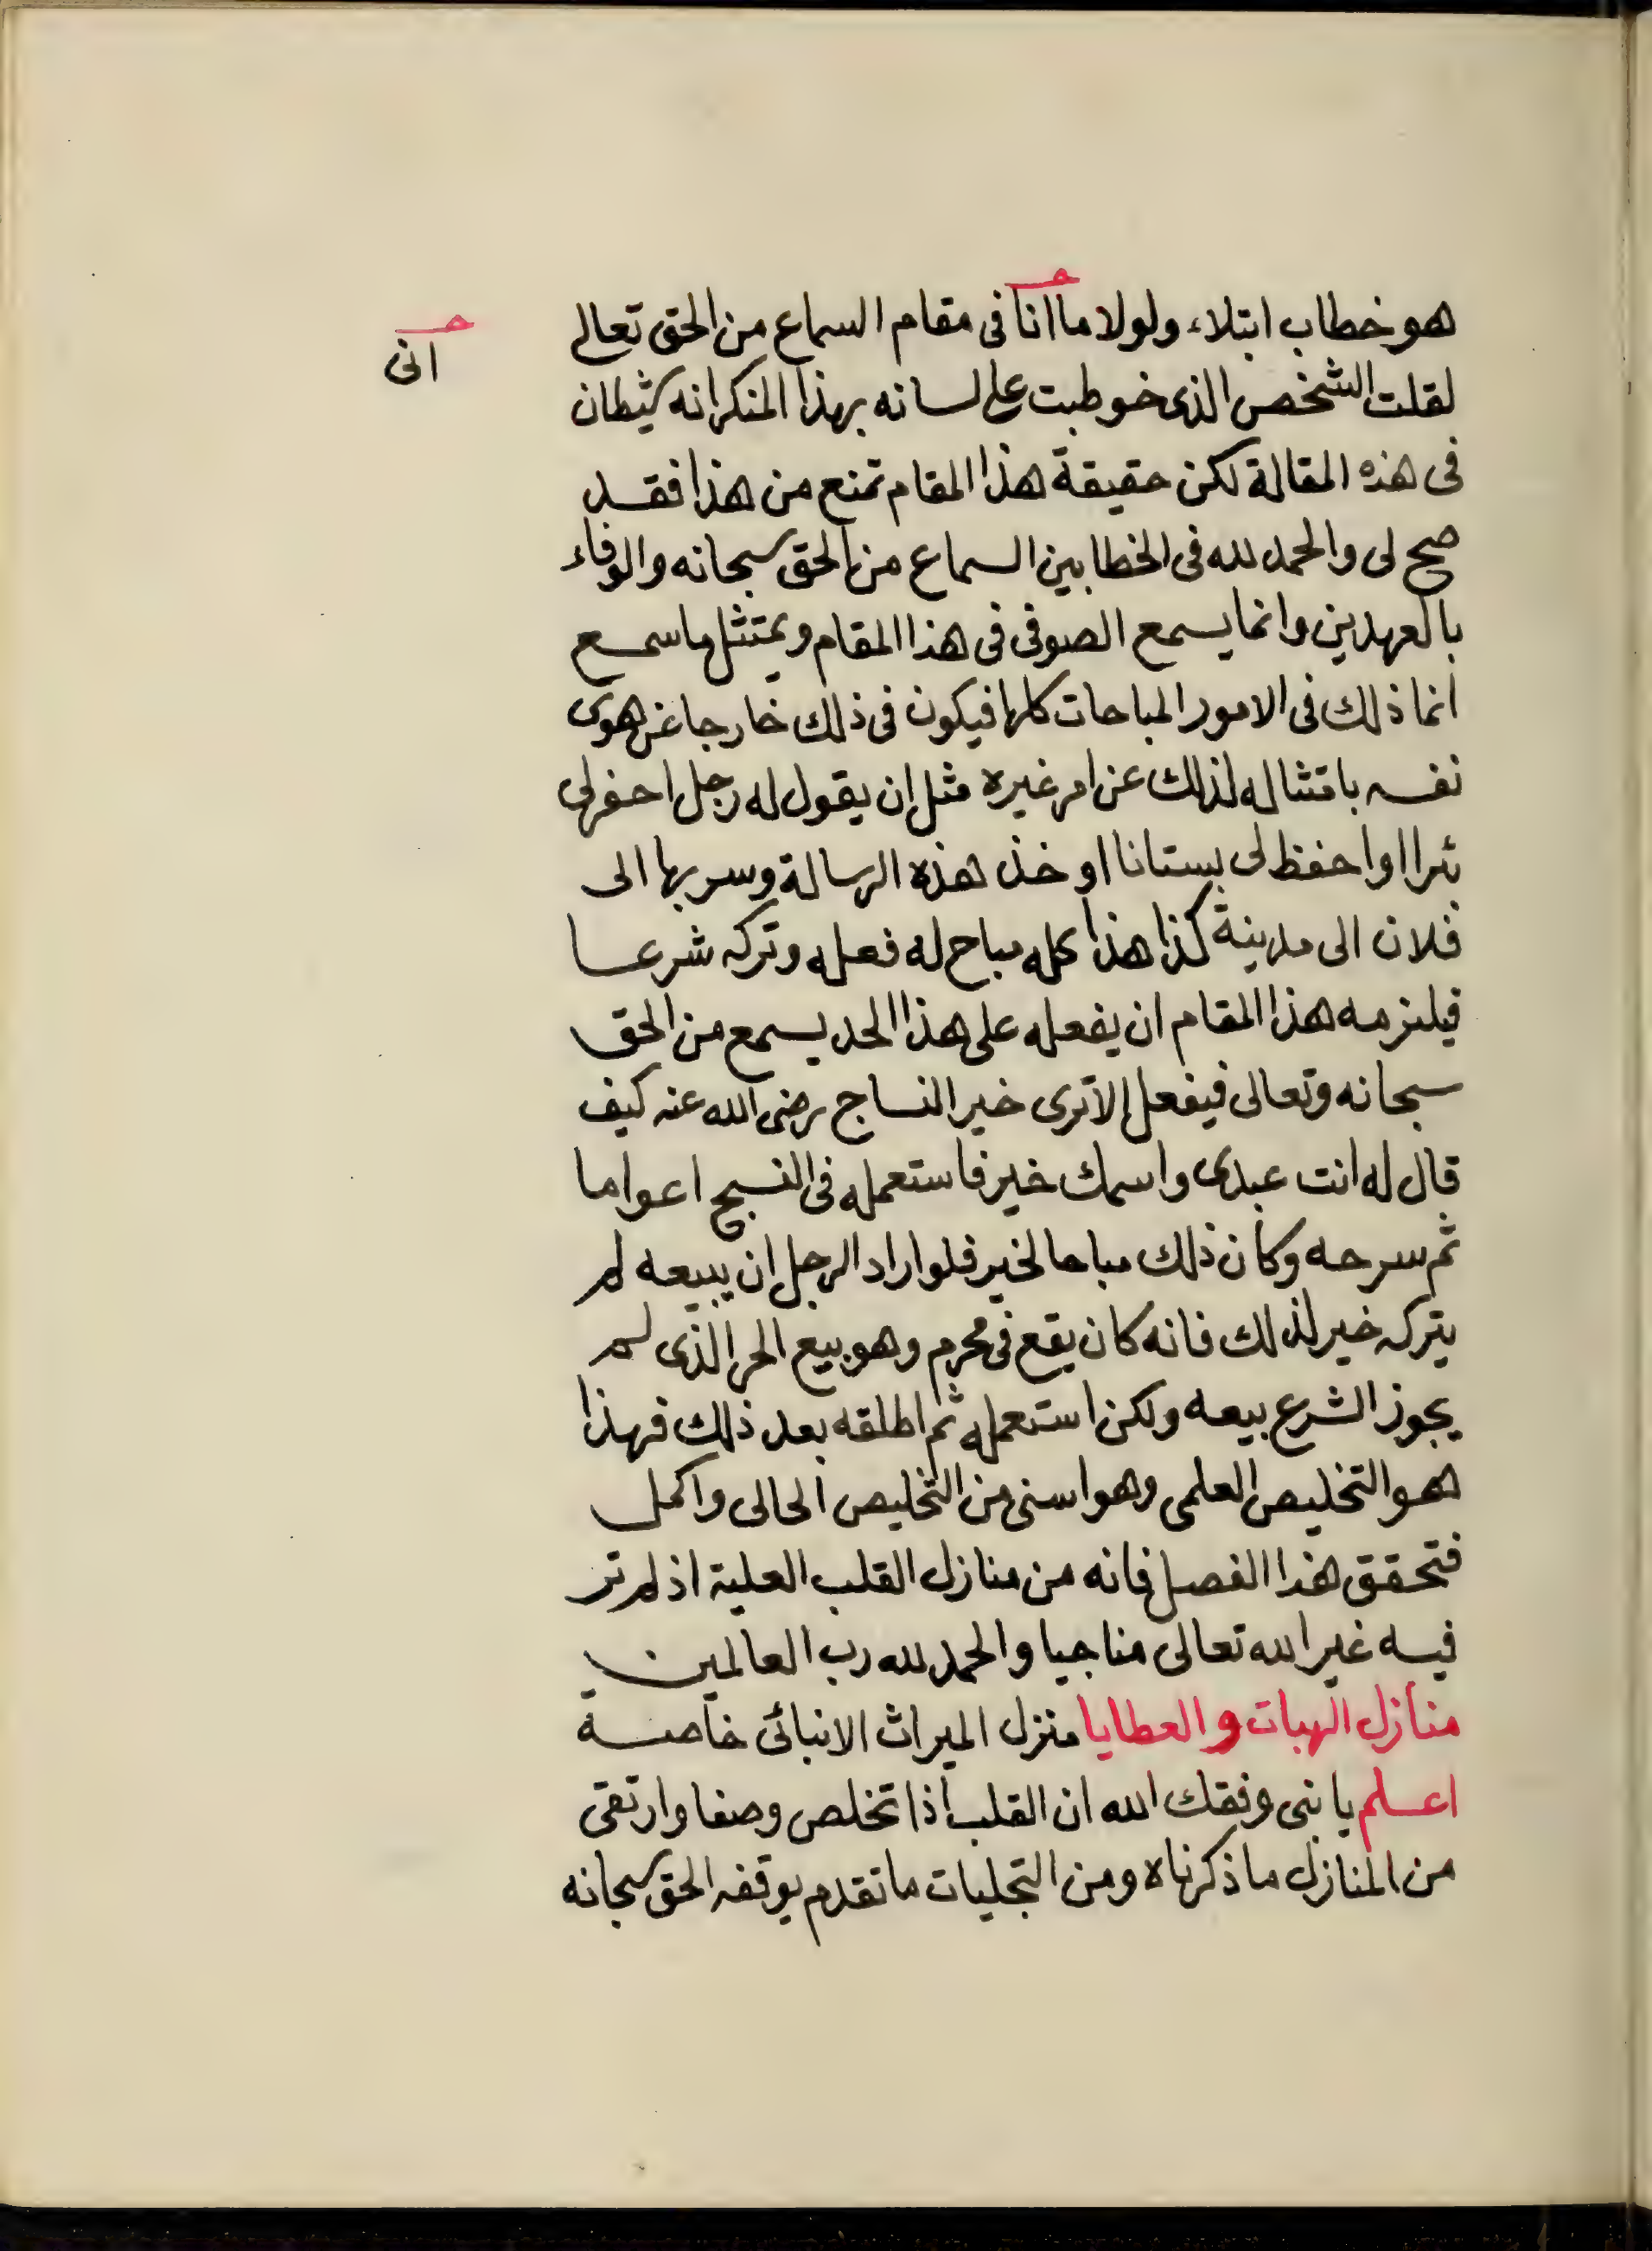 هو خطاب ابتلاء ولولا ما انا فى مقام السماع من الحق تعالى
انى
لقلت الشخص الذى خوطبت على لسانه بهذا المنكر انه شيطان
فى هذه المقالة لكن حقيقة هذا المقام تمنع من هذا فقد
صح لى والحمد لله فى الخطابين السماع من الحق سبحانه والوفاء
بالعهدين وانما يسمع الصوفى فى هذا المقام ويمتثل ما سمع
انما ذلك فى الامور المباحات كلها فيكون فى ذلك خارجا عن هوى
نفسه بامتثاله لذلك عن امر غيره مثل ان يقول له رجل احفر لى
بئرا او احفظ لى بستانا او خذ هذه الرسالة وسر بها الى
فلان الى مدينة كذا هذا كله مباح له فعله وتركه شرعا
فيلزمه هذا المقام ان يفعله على هذا الحد يسمع من الحق
سبحانه وتعالى فيفعل الا ترى خير النساج رضى الله عنه كيف
قال له انت عبدى واسمك خير فاستعمله فى النسج اعواما
ثم سرحه وكان ذلك مباحا لخير فلو اراد الرجل ان يبيعه لم
يتركه خير لذلك فانه كان يقع فى محرم وهو بيع الحر الذى لم
يجوز الشرع بيعه ولكن استعمله ثم اطلقه بعد ذلك فهذا
هو التخليص العلمى وهو اسنى من التخليص الحالى واكمل
فتحقق هذا الفصل فانه من منازل القلب العلية اذ لم تر
فيه غير الله تعالى مناجيا والحمد لله رب العالمين
منازل الهبات والعطايا منزل الميراث الانبائى خاصة
اعلم يا بنى وفقك الله ان القلب اذا تخلص وصفا وارتقى
من المنازل ما ذكرناه ومن التجليات ما تقدم يوقفه الحق سبحانه